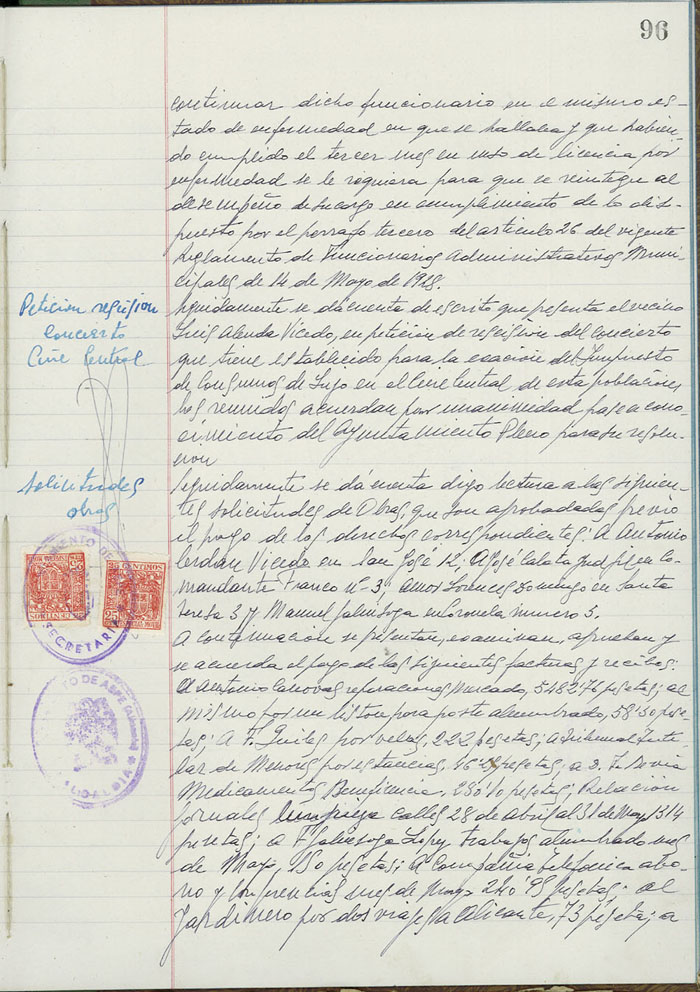 96
continuar dicho funcionario en el mismo es-
tado de enfermedad en que se hallaba y que habien-
do cumplido el tercer mes en uso de licencia por
enfermedad se le requiera para que se reintegre al
desempeño de su cargo en cumplimiento de lo dis-
puesto por el parrafo tercero del articulo 26 del vigente
Reglamento de Funcionarios Administrativos Muni-
cipales de 14 de Mayo de 1928.
Petición rescision
Concierto
Cine Central
Seguidamente se da cuenta de escrito que presenta el vecino
Luis Alenda Vicedo, en petición de rescision del concierto
que tiene establecido para la exacion del Impuesto
de Consumos de Lujo en el Cine Central de esta población,
los reunidos acuerdan por unanimidad pase a cono-
cimiento del Ayuntamiento Pleno para su resolu-
cion
Solicitudes
obras
Seguidamente se da cuenta digo lectura a las siguien-
tes solicitudes de Obras que son aprobadas previo
el pago de los derechos correspondientes: A Antonio
Cerdan Vicedo en San José 12; A José Calatayud en Co-
mandante Franco nº 3; Amor Llorens Domingo en Santa
Teresa 3 y Manuel en numero 5.
A continuación se presentan, examinan, aprueban y
se acuerda el pago de las siguientes facturas y recibos:
A Antonio Canovas reparaciones Mercado, 5482'76 pesetas; al
mismo por un liston para poste alumbrado, 58'30 pese-
tas; A F. Quiles por velas, 222 pesetas; a Tribunal Tute-
lar de Menores por estancias, pesetas; a
Medicamentos Beneficencia, 230'10 pesetas; Relación
jornales limpieza calles 28 de abril al 31 de Mayo 1314
pesetas; a F Galiesoga López, trabajos alumbrado mes
de Mayo, 150 pesetas; A Compañia Telefónica abo-
no y conferencias mes de Mayo 240'95 pesetas; al
Jardinero por dos viajes a Alicante, 73 peseta; a
25 CENTIMOS
SECRETARIA
ALCALDIA